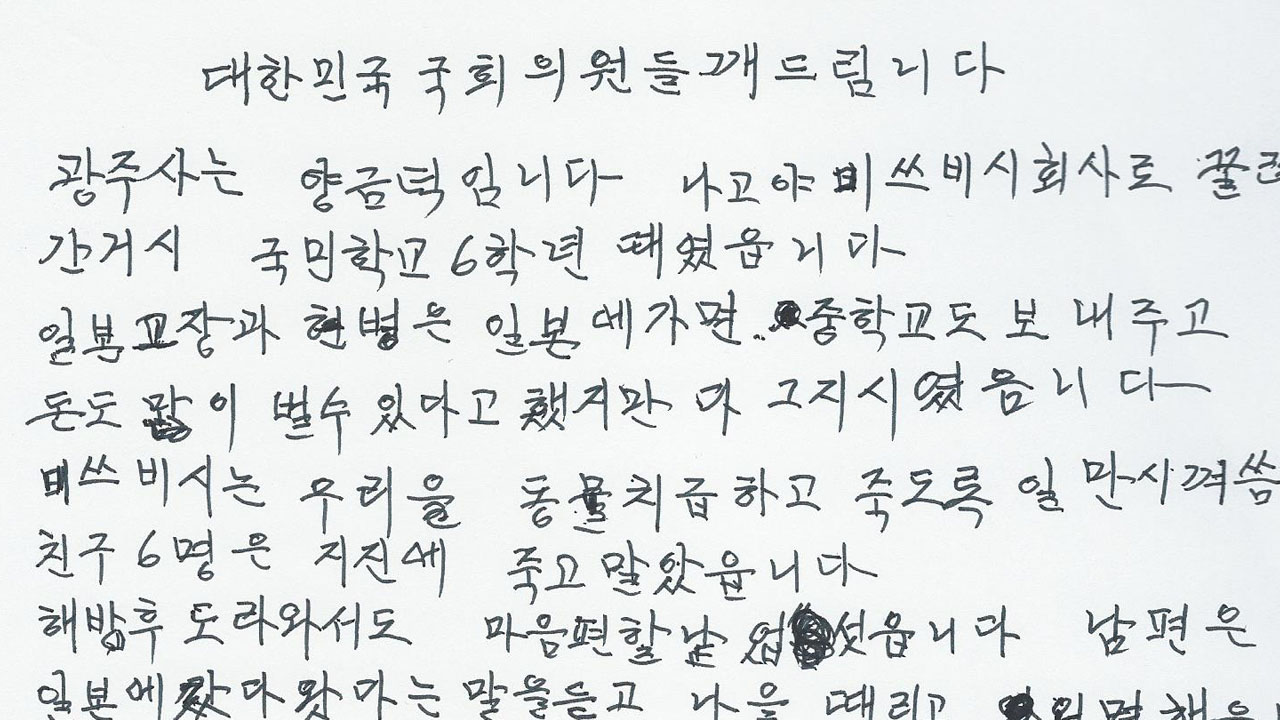 대한민국 국회의원들깨드림니다
광주사는 양금덕임니다 나고야 미쓰비시회사로 끌
간거시 국민학교 6학년 때였읍니다
일본교장과 헌병은 일본에가면.. 중학교도 보내주고
돈도 많이 벌수있다고 했지만 다 그지시였읍니다
미쓰비시는 우리을 동물치급하고 죽도록 일만시켜씀
친구 6명은 지진에 죽고말았읍니다
해방후 도라와서도 마음편할날 업섯읍니다 남편은
일본에 갔다왓다는 말을듣고 나을 때리고 외면했